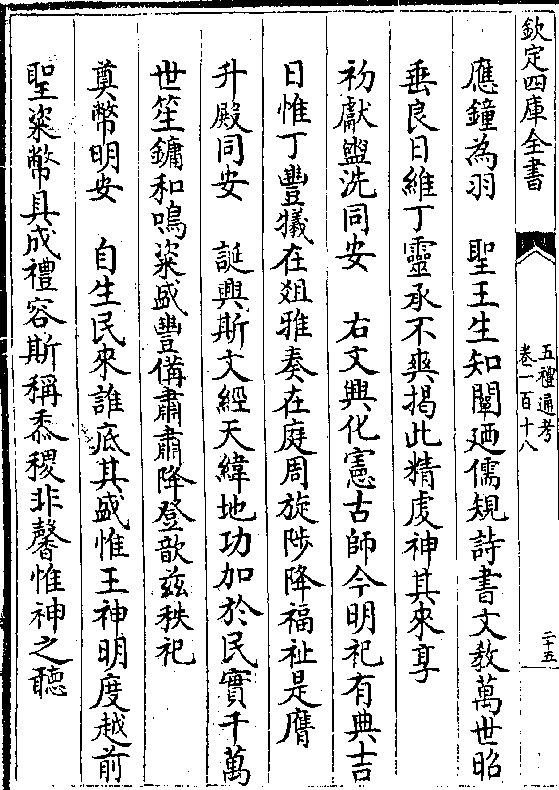 欽定四庫全書
五禮通考
卷一百十八
二十五
應鐘為羽　聖王生知闡廼儒規詩書文教萬世昭
垂良日維丁靈承不爽揭此精虔神其來享
初獻盥洗同安　右文興化憲古師今明祀有典吉
日惟丁豐犧在俎雅奏在庭周旋陟降福祉是膺
升殿同安　誕興斯文經天緯地功加於民實千萬
世笙鏞和鳴粢盛豐備肅肅降登歆兹秩祀
奠幣明安　自生民來誰底其盛惟王神明度越前
聖粢幣具成禮容斯稱黍稷非馨惟神之聽